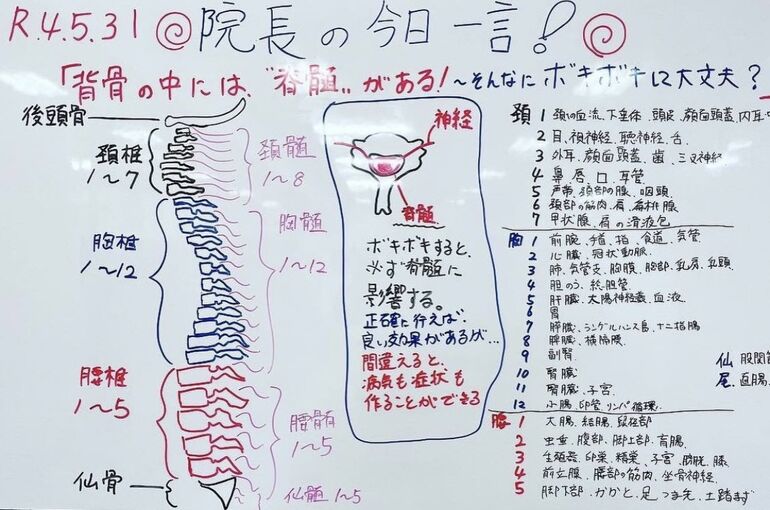 R.4.5.31 院長の今日一言!
「背骨の中には、"脊髄"がある!~そんなにボキボキして大丈夫?
後頭骨
頚椎
1~7
頚髄
1~8
胸椎
1~12
胸髄
1~12
腰椎
1~5
腰髄
1~5
仙骨
仙髄 1~5
神経
脊髄
ボキボキすると、
必ず脊髄に
影響する。
正確に行えば、
良い効果があるが…
間違えると、
病気も症状も
作ることができる
頚 1 頭の血流、下垂体、頭皮、顔面頭蓋、内耳
2 目、視神経、聴神経、舌
3 外耳、顔面頭蓋、歯、三叉神経
4 鼻、唇、口、耳管
5 声帯、頚部の腺、咽頭
6 頚部の筋肉、肩、扁桃腺
7 甲状腺、肩の滑液包
胸 1 前腕、手、指、食道、気管
2 心臓、冠状動脈
3 肺、気管支、胸膜、胸部、乳房、乳頭
4 胆のう、総胆管
5 肝臓、太陽神経叢、血液
6 胃
7 膵臓、ランゲルハンス島、十二指腸
8 脾臓、横隔膜
9 副腎
10 腎臓
11 腎臓、子宮
12 小腸、卵管、リンパ循環
腰 1 大腸、結腸、鼠径部
2 虫垂、腹部、脚上部、盲腸
3 生殖器、卵巣、精巣、子宮、膀胱、膝
4 前立腺、腰部の筋肉、坐骨神経
5 脚下部、かかと、足、つま先、土踏まず
仙 股関
尾 直腸、